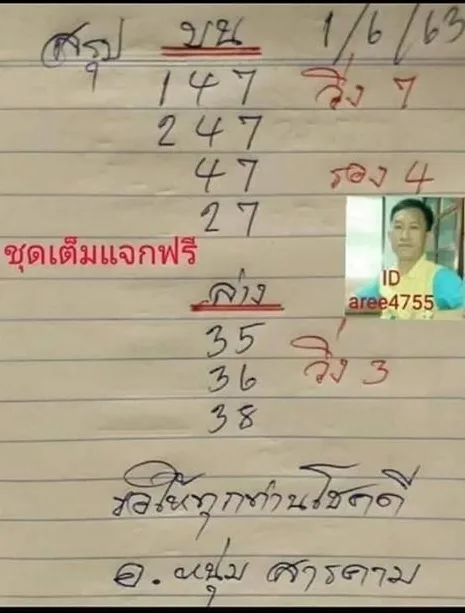 สรุป บน 1/6/63
147 วิ่ง 7
247
47 รอง 4
27
ชุดเต็มแจกฟรี
ID
aree4755
ล่าง
35
36 วิ่ง 3
38
ขอให้ทุกท่านโชคดี
อ. หนุ่ม สารคาม